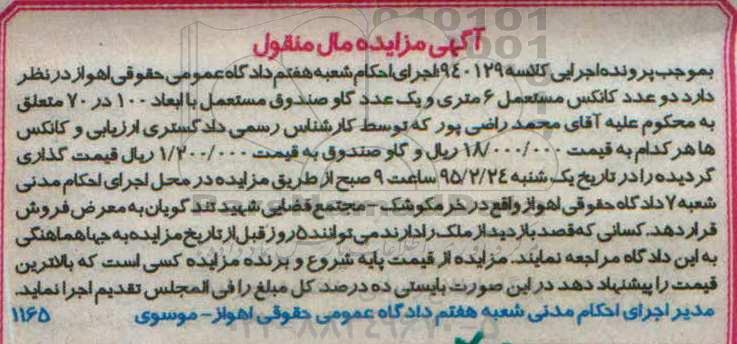 آگهی مزایده مال منقول
بموجب پرونده اجرایی کلاسه ۹۴۰۱۲۹ اجرای احکام شعبه هفتم دادگاه عمومی حقوقی اهواز در نظر
دارد دو عدد کانکس مستعمل ۶ متری و یک عدد گاو صندوق مستعمل با ابعاد ۱۰۰ در ۷۰ متعلق
به محکوم علیه آقای محمد راضی پور که توسط کارشناس رسمی دادگستری ارزیابی و کانکس
ها هر کدام به قیمت ۱۸/۰۰۰/۰۰۰ ریال و گاو صندوق به قیمت ۱/۲۰۰/۰۰۰ ریال قیمت گذاری
گردیده را در تاریخ یک شنبه ۹۵/۲/۲۴ ساعت ۹ صبح از طریق مزایده در محل اجرای احکام مدنی
شعبه ۷ دادگاه حقوقی اهواز واقع در خرمکوشک - مجتمع قضایی شهید تند گویان به معرض فروش
قرار دهد. کسانی که قصد بازدید از ملک را دارند می توانند ۵ روز قبل از تاریخ مزایده به جهت هماهنگی
به این دادگاه مراجعه نمایند. مزایده از قیمت پایه شروع و برنده مزایده کسی است که بالاترین
قیمت را پیشنهاد دهد در این صورت بایستی ده درصد کل مبلغ را فی المجلس تقدیم اجرا نماید.
مدیر اجرای احکام مدنی شعبه هفتم دادگاه عمومی حقوقی اهواز - موسوی ۱۱۶۵